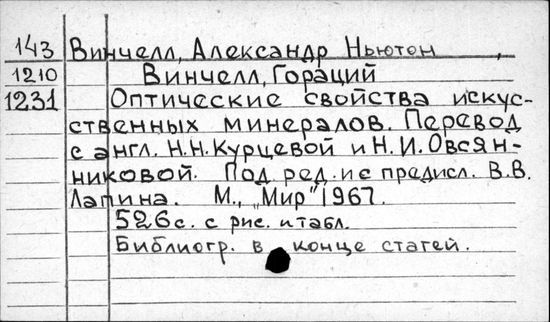 143 Винчелл, Александр Ньютон,
1210 Винчелл, Гораций
1231 Оптические свойства искус-
ственных минералов. Перевод
с англ. Н.Н. Курцевой и Н.И. Овсян-
никовой. Под ред. и с предисл. В.В.
Лапина. М., „Мир" 1967.
526 с. с рис. и табл.
Библиогр. в конце статей.